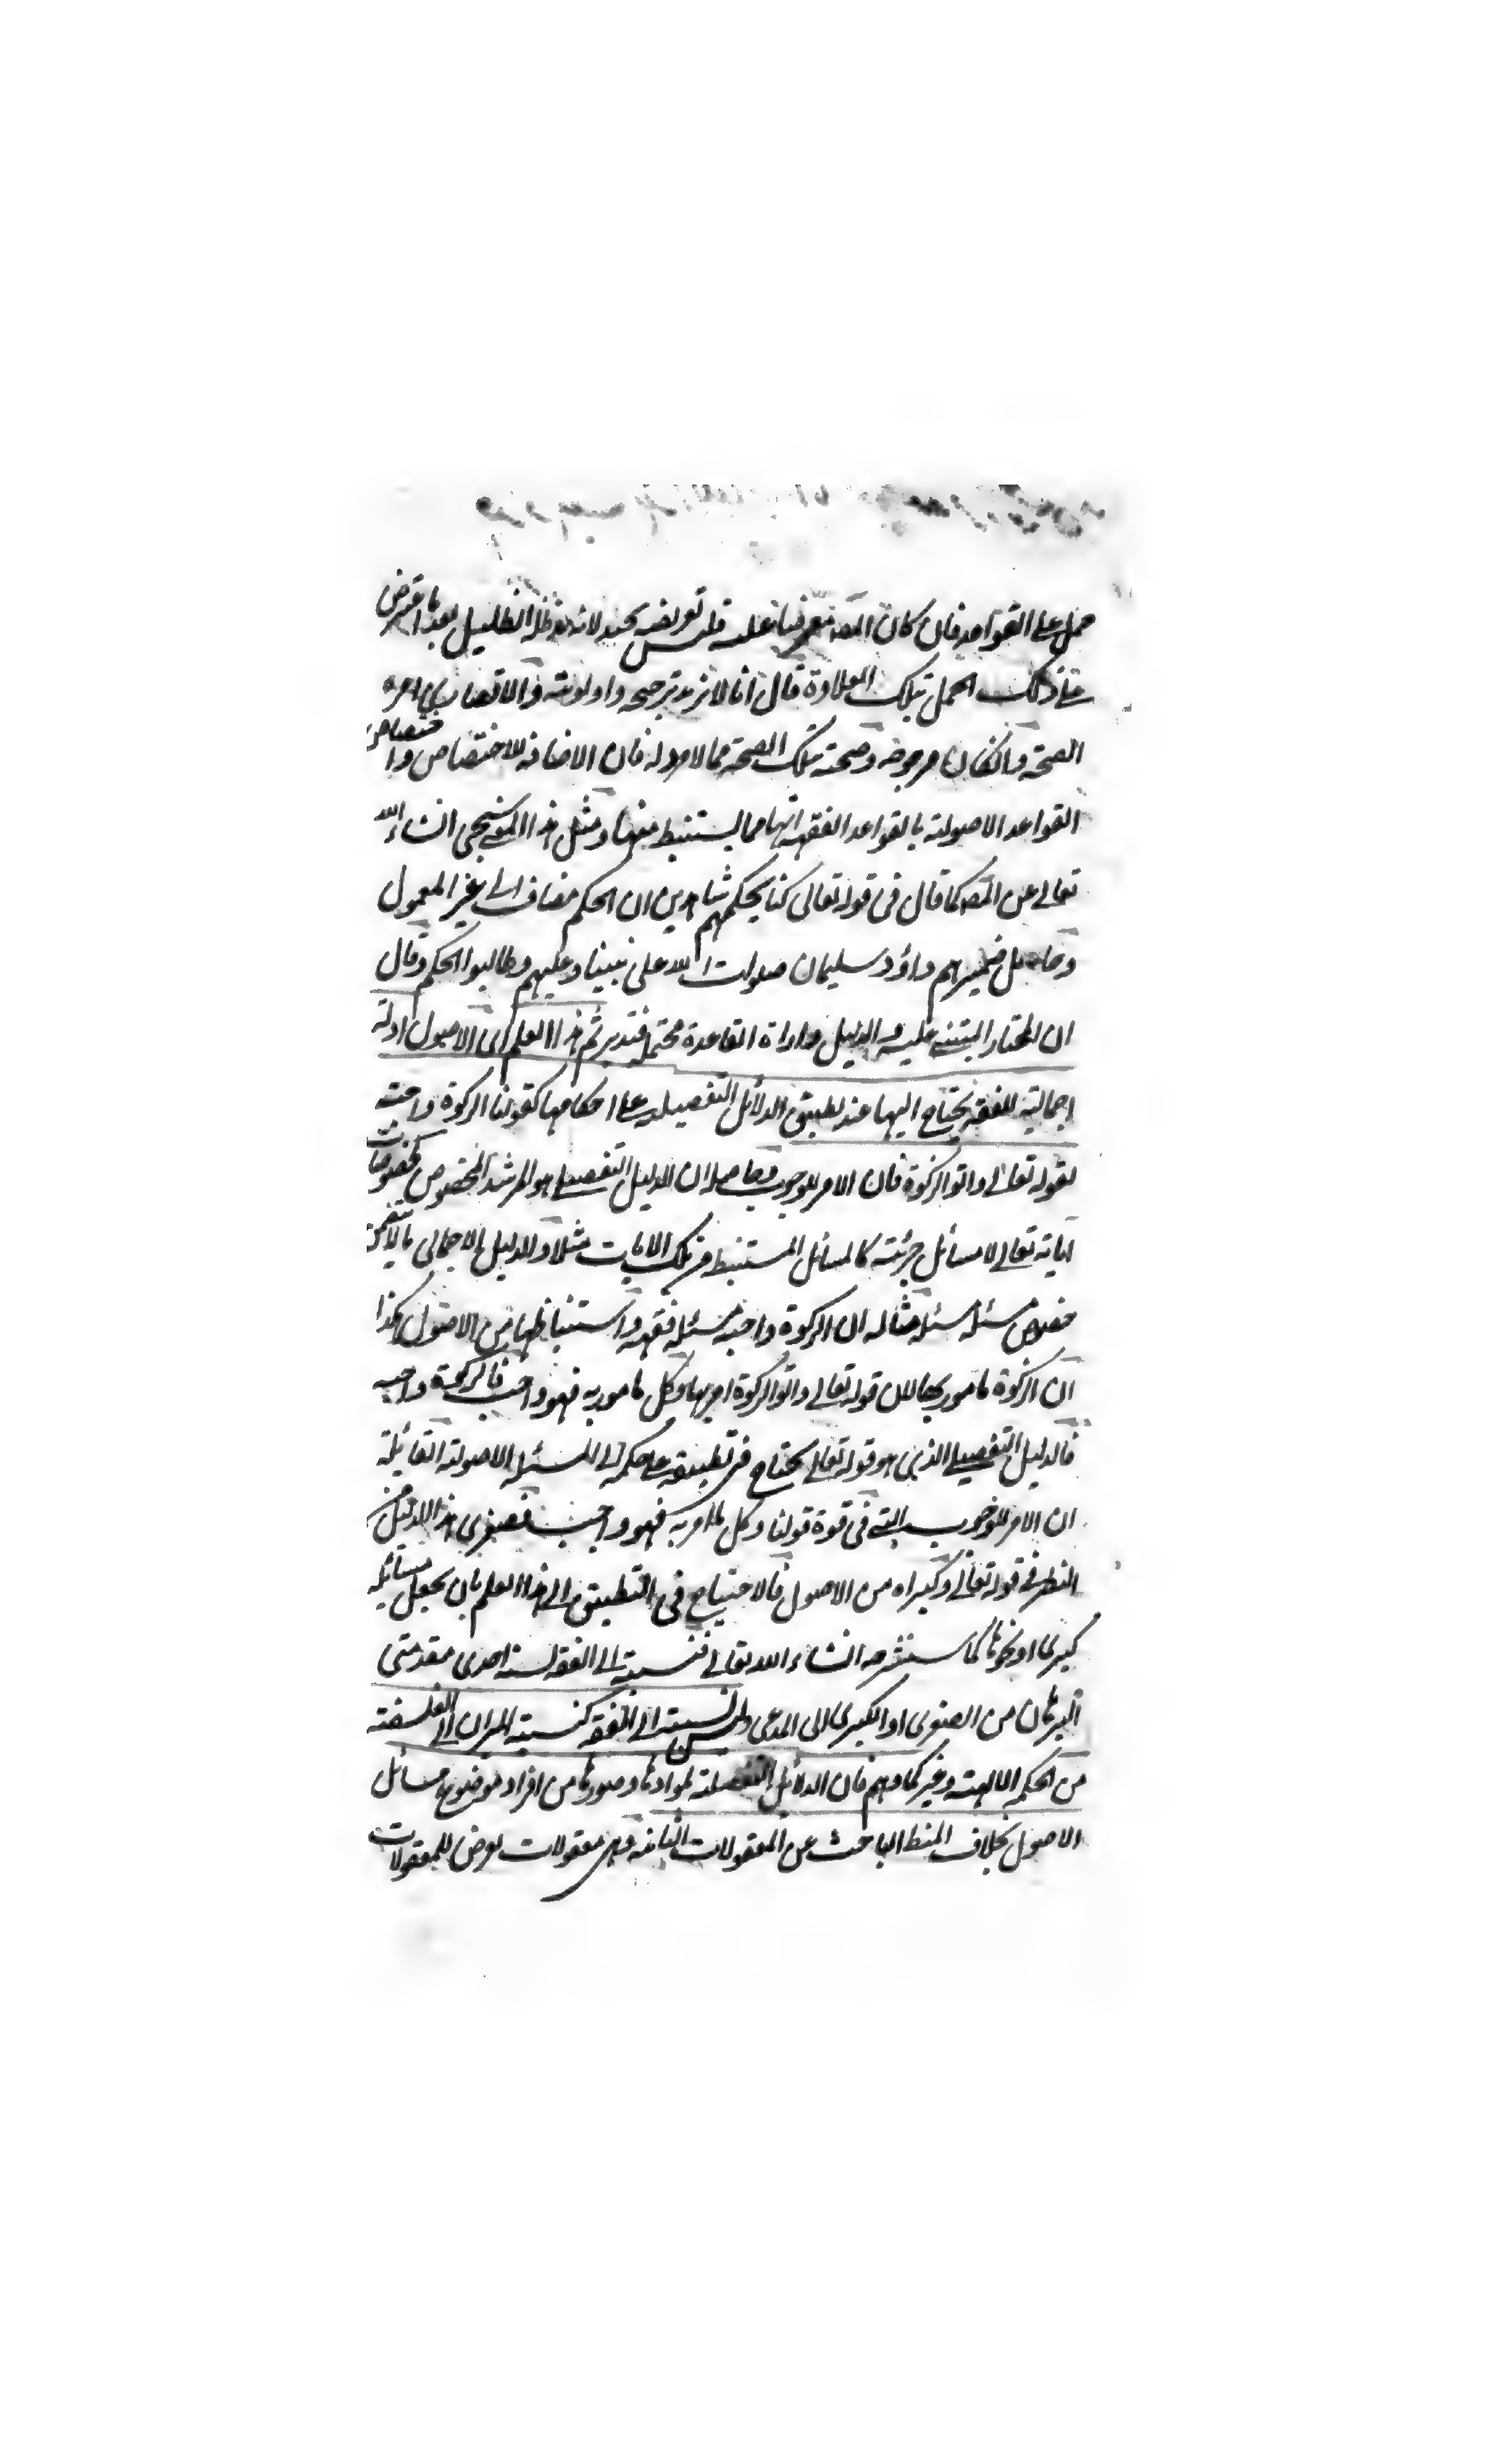 حمل على القواعد فان كان المصـ معرضا عليه فليس تعريضه بجيد لانه بعد ما اعترض
على ذلك الحمل بتلك العلاوة قال انا لا نريد ترجيحه واولويته والاقصاى امره
الصحة وبالكفان ما مرجوحه وصحة تلك الصحة مما لا مرد له فان الاضافة للاختصاص واختصاص
القواعد الاصولية بالقواعد الفقه انها مما يستنبط منها ومثل هذا المعنى سيجى انشاء الله
تعالى عن المصـ كما قال فى قوله تعالى كنا لحكمهم شاهدين ان الحكم مضاف الى غير المعمول
وحاصل ضميرهم داؤد وسليمان صلوات الله على نبينا وعليهم وطالبوا الحكم وقال
ان المختار المبتنى عليه والدليل واداة القاعدة محتمل فتدبر ثم هذا العلم اى الاصول ادلة
اجمالية للفقه يحتاج اليها عند تطبيق الدلائل التفصيلية على احكامها كقولنا الزكوة واجبة
لقوله تعالى واتوا الزكوة فان الامر للوجوب وحاصله ان الدليل التفصيلى هو المرشد المخصوص كخصوصيات
اياته تعالى لا مسائل جزئية كالمسائل المستنبط من تلك الايات مثلا والدليل الاجمالى ما لا يتضمن
خصوص مسئلة مسئلة مثاله ان الزكوة واجبة مسئلة فقهية واستنباطها من الاصول هكذا
ان الزكوة مامور بها لان قوله تعالى واتوا الزكوة امر بها وكل مامور به فهو واجب فالزكوة واجبة
فالدليل التفصيلى الذى هو قوله تعالى يحتاج فى تطبيقه على حكمه الى المسئلة الاصولية القائلة
ان الامر للوجوب التى فى قوة قولنا وكل مامور به فهو واجب فصغرى هذا الدليل من
النظر فى قوله تعالى وكبراه من الاصول فالاحتياج فى التطبيق الى هذا العلم بان يجعل مسائله
كبرى او نحوها كما سنشرحه انشاء الله تعالى فنسبته الى الفقه كنسبة احدى مقدمتى
البرهان من الصغرى او الكبرى الى المدعى وليس نسبته الى الفقه كنسبة الميزان الى الفلسفة
من الحكمة الالهية وغيرها كما وهم فان الدلائل التفصيلية بموادها وصورها من افراد موضوع مسائل
الاصول بخلاف المنطق الباحث عن المعقولات الثانية وهى معقولات تعرض للمعقولات